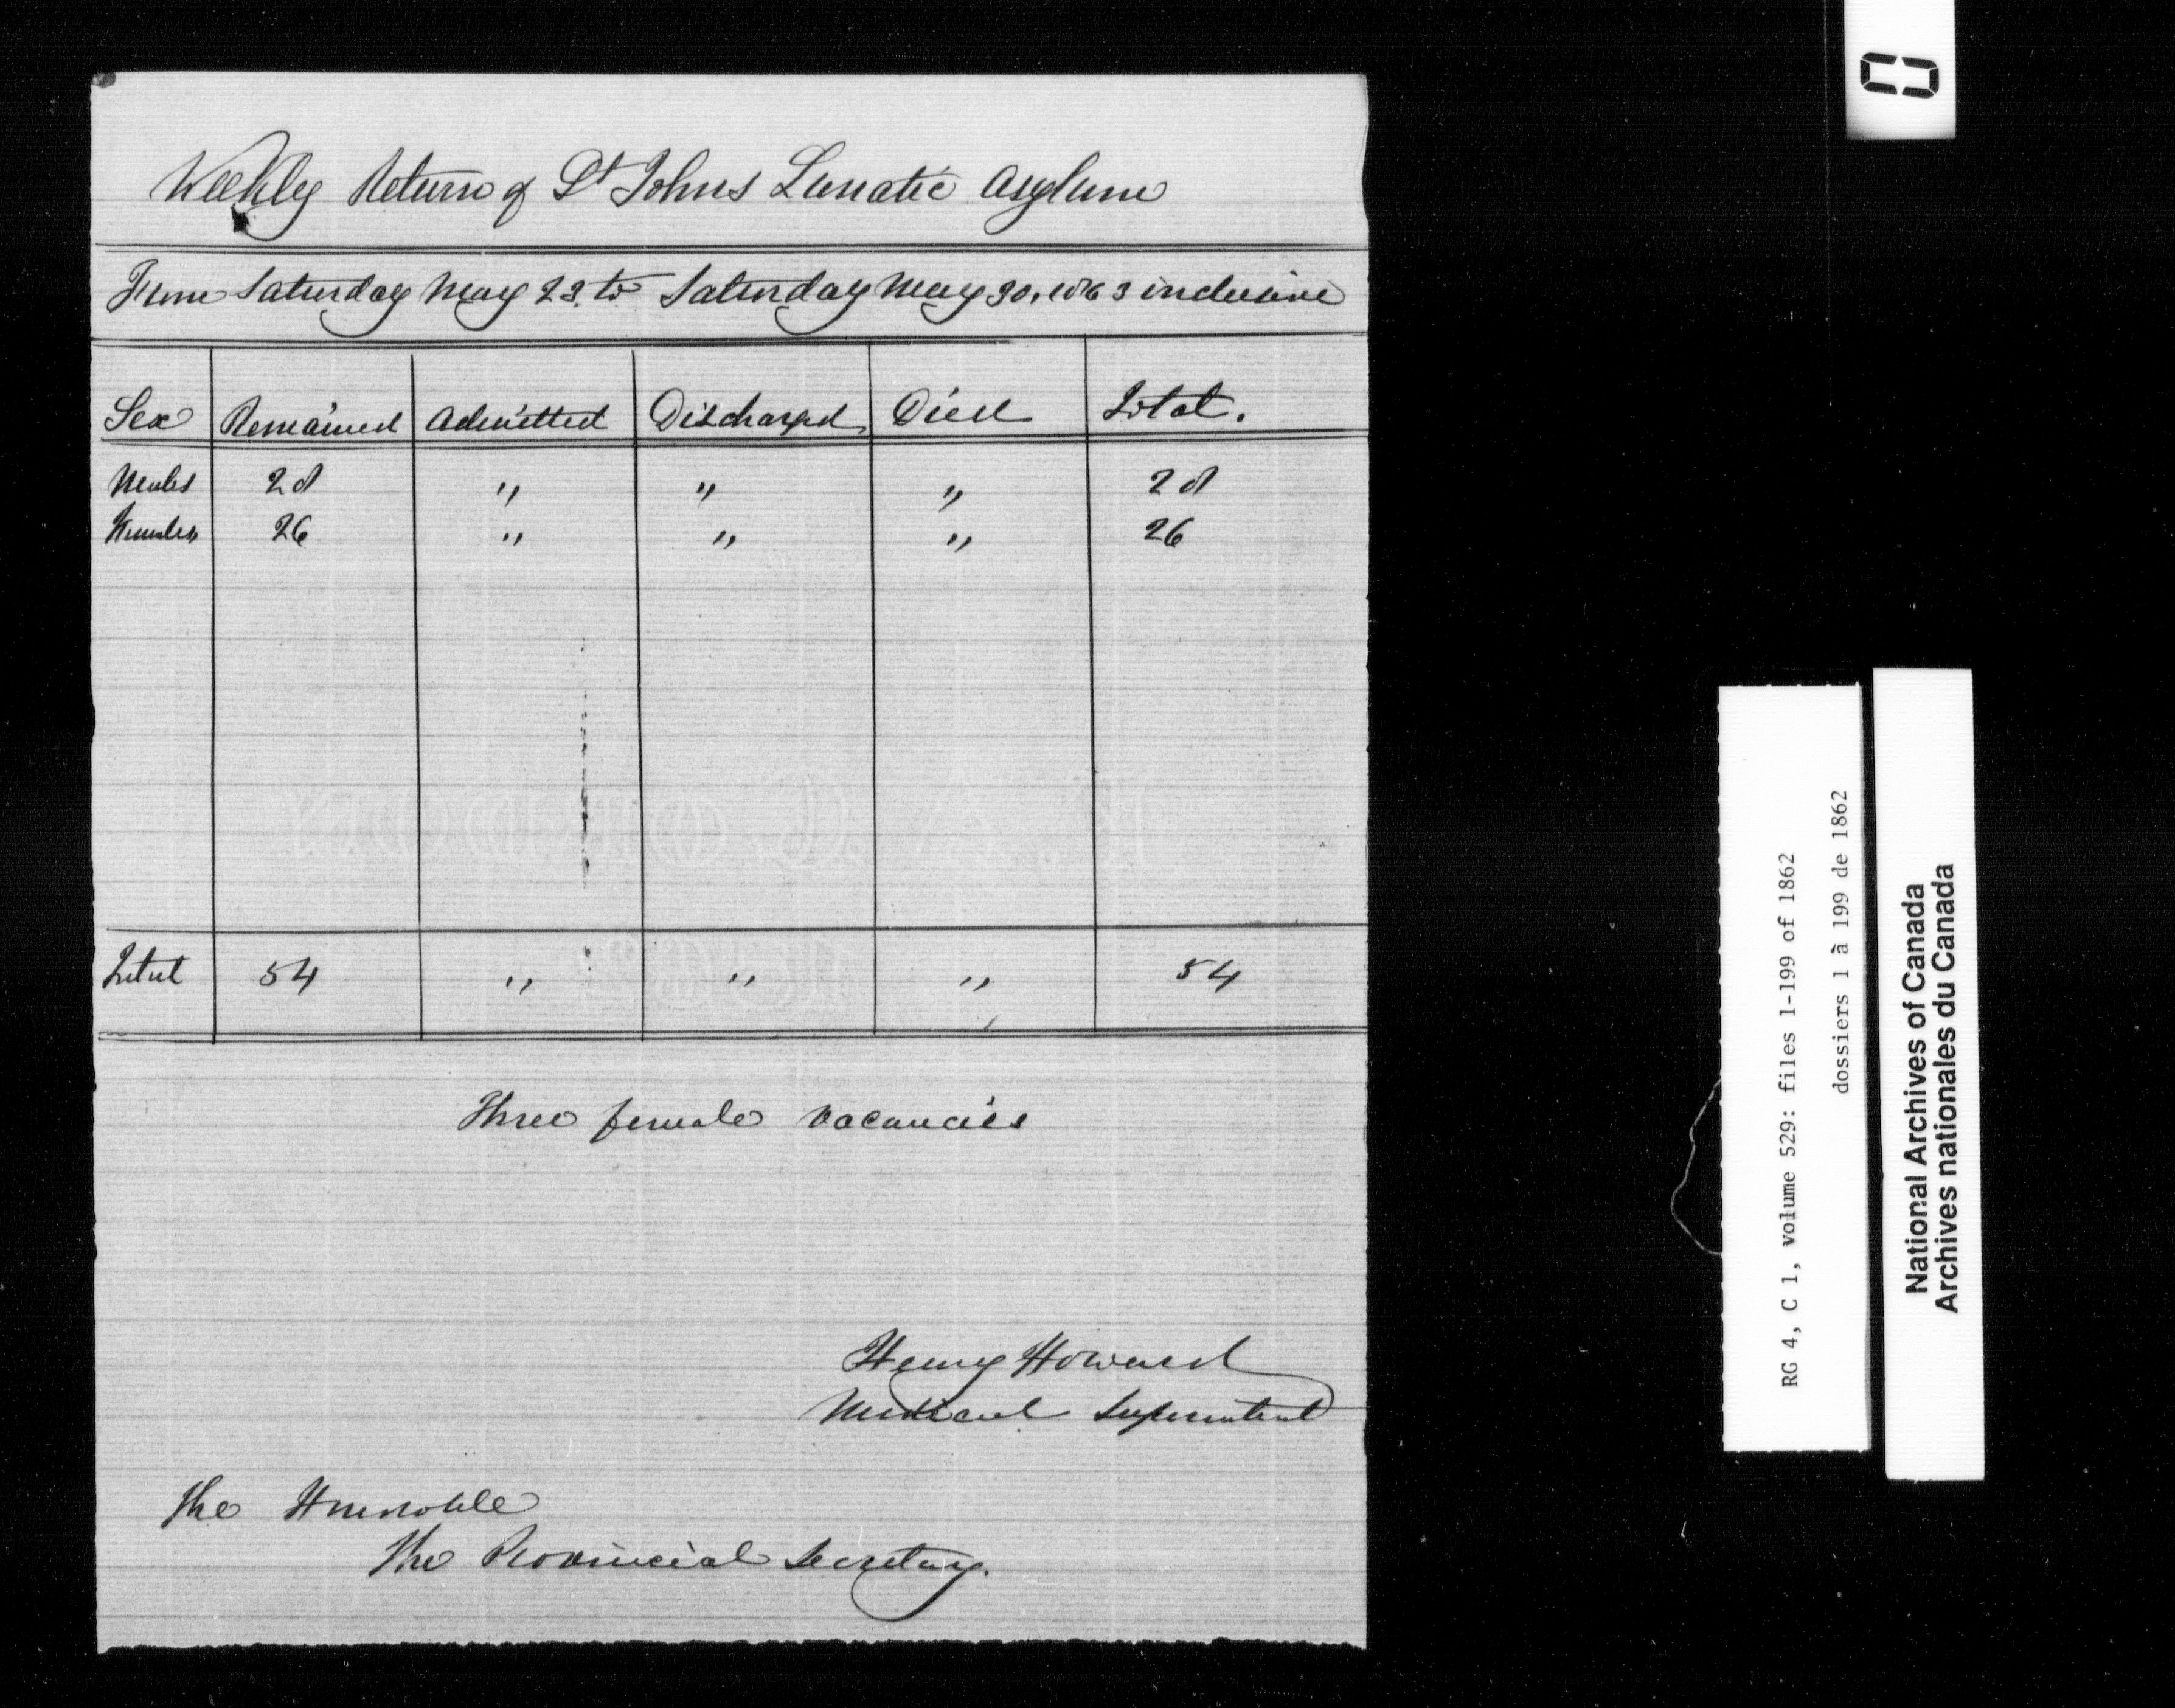 Weekly Return of St Johns Lunatic Asylum
From Saturday May 23. to Saturday May 30, 1863 inclusive
Sex Remained Admitted Discharged Died Total.
Males 28 " " " 28
Females 26 " " " 26
Total 54 " " " 54
Three female vacancies
Henry Howard
Medical
The Honorable
The Provincial Secretary.
RG 4, C 1, volume 529: files 1-199 of 1862
dossiers 1 à 199 de 1862
National Archives of Canada
Archives nationales du Canada